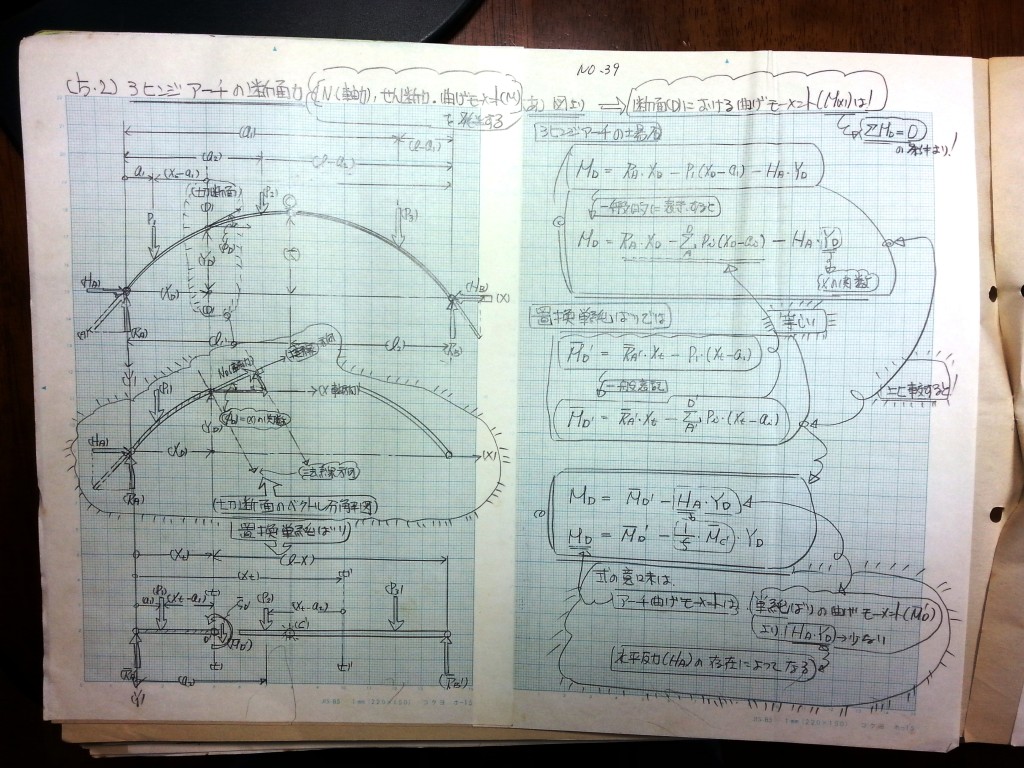 NO.39
(5.2) 3ヒンジアーチの断面力 (N(軸力), せん断力, 曲げモーメント(M)
を発生する
図より ⇒ 断面(D)における曲げモーメント(Mx)は!
ΣM_D = 0
の条件より!
3ヒンジアーチの場合
M_D = R_A・X_D − P_1(X_D−a_1) − H_A・Y_D
一般的に表示すると
M_D = R_A・X_D − Σ P_i(X_D−a_i) − H_A・Y_D
Xの関数
等しい
置換単純ばりでは
M̄_D' = R̄_A'・X_t − P_1・(X_t−a_1)
一般表記
M_D' = R̄_A'・X_t − Σ P_i・(X_t−a_i)
上と比較すると!
M_D = M̄_D' − H_A・Y_D
M_D = M̄_D' − (1/f・M̄_C')・Y_D
式の意味は、
アーチ曲げモーメントは 単純ばりの曲げモーメント(M_D')
より H_A・Y_D → 少ない
水平反力(H_A)の存在によってなる
(a_3)
(l−a_3)
(a_2)
(l−a_2)
a_1
(X_D−a_1)
(仕切断面)
P_1
(P_2)
(P_3)
C
(Y_D)
(H_A)
(X_D)
(H_B)
(X)
(R_A)
(R_B)
l_2
(P_1)
(X軸方向)
(H_A)
(X_D)
(Y_D)
(X)
(R_A)
法線方向
(仕切断面のベクトル分解図)
置換単純ばり
(X_t)
(l−X)
(X_t)
(P_1)
(X_t−a_1)
(P_2)
(X_t−a_2)
(P_3)
(C')
(a_2)
(R̄_B')
1mm(220×150) コクヨ ホ-18
1mm(220×150) コクヨ ホ-18